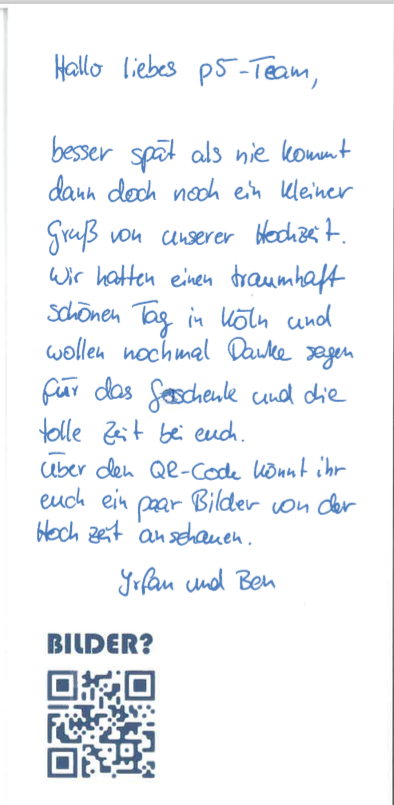 Hallo liebes p5-Team,
besser spät als nie kommt
dann doch noch ein kleiner
Gruß von unserer Hochzeit.
Wir hatten einen traumhaft
schönen Tag in Köln und
wollen nochmal Danke sagen
für das Geschenk und die
tolle Zeit bei euch.
Über den QR-Code könnt ihr
euch ein paar Bilder von der
Hochzeit anschauen.
Yrfan und Ben
BILDER?